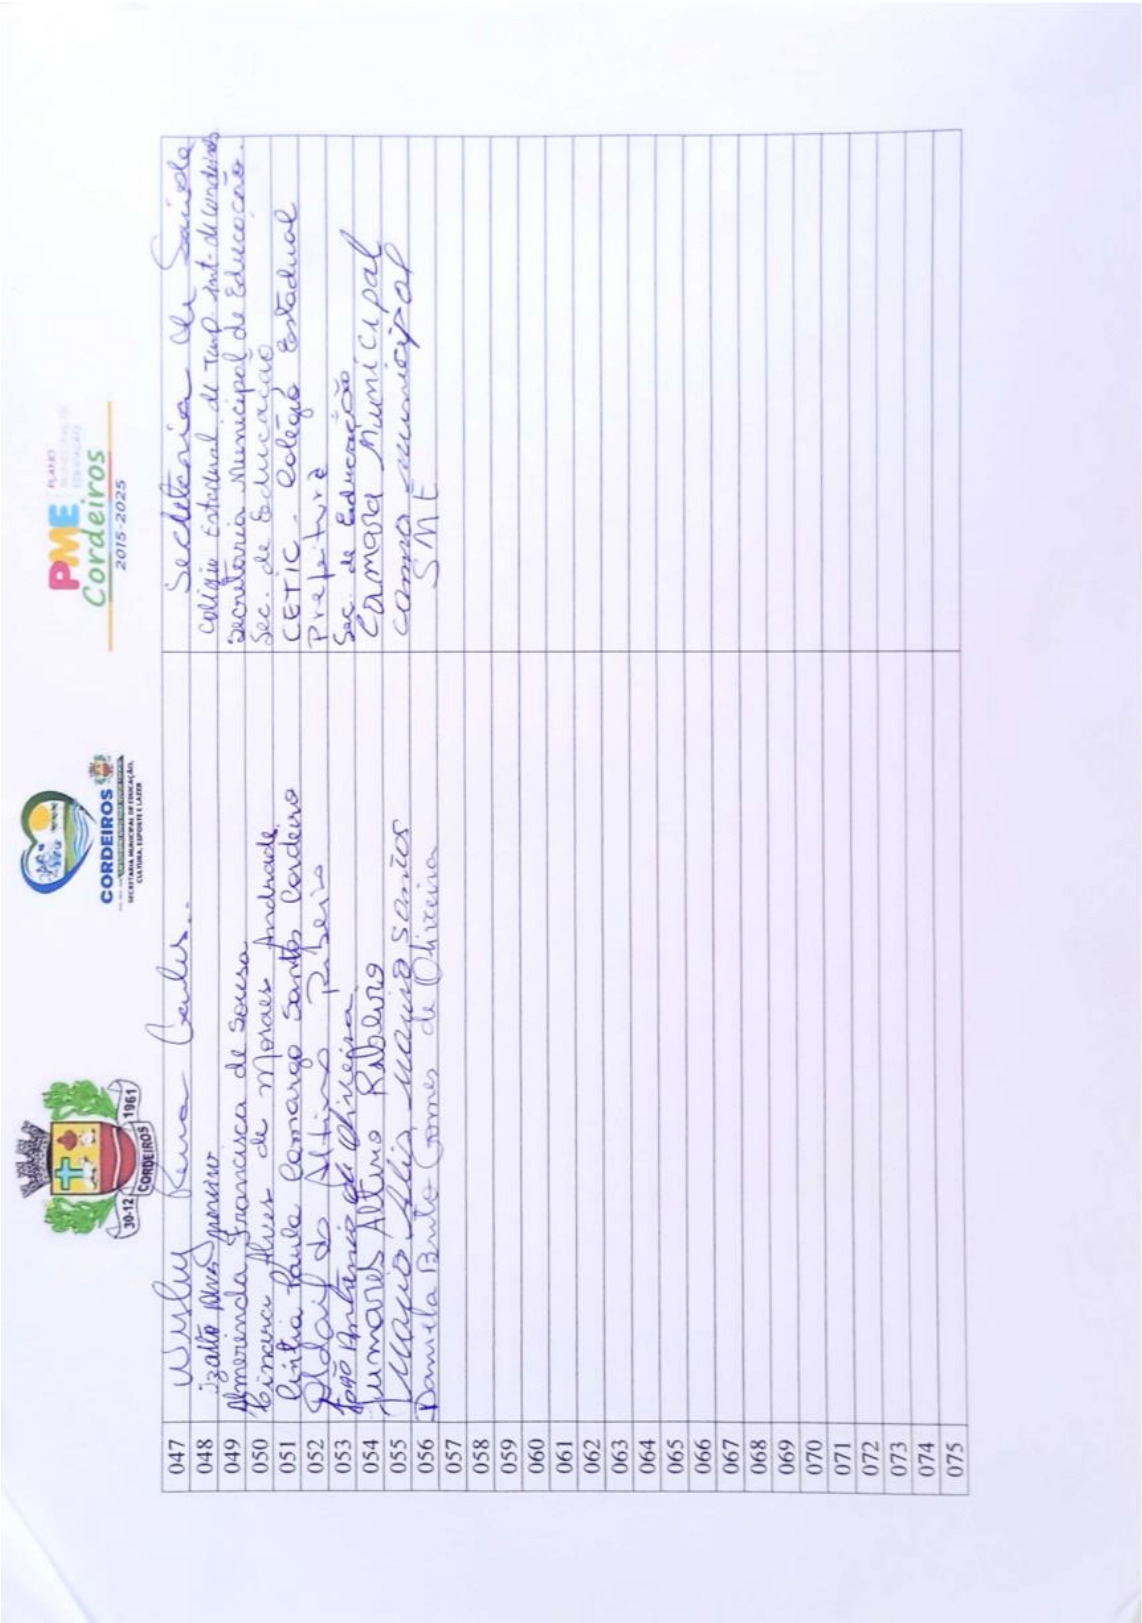 30-12 CORDEIROS 1961
CORDEIROS
SECRETARIA MUNICIPAL DE EDUCAÇÃO,
CULTURA, ESPORTE E LAZER
PME PLANO MUNICIPAL DE EDUCAÇÃO
Cordeiros
2015-2025
047 Secretaria de Saúde
048 Colégio Estadual de Temp. Int. de Cordeiros
049 Almerenda Francisca de Sousa Secretaria Municipal de Educação.
050 Cinara Alves de Moraes Andrade. Sec. de Educação
051 Cintia Paula Camargo Santos Cordeiro CETIC. Colégio Estadual
052 Altino Ribeiro Prefeitura
053 João Antônio de Oliveira Sec. de Educação
054 Jumares Altino Ribeiro Camara Municipal
055 Santos camara municipal
056 Daniela Brito Gomes de Oliveira SME
057
058
059
060
061
062
063
064
065
066
067
068
069
070
071
072
073
074
075